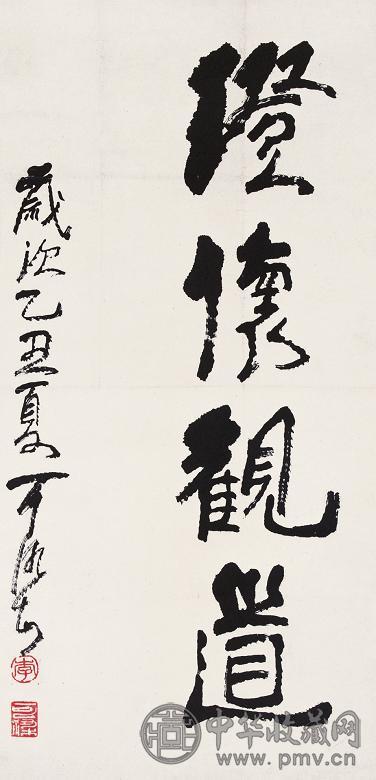 澄懷觀道
歲次乙丑夏可染書
李
可染
中华收藏网
www.pmv.cn